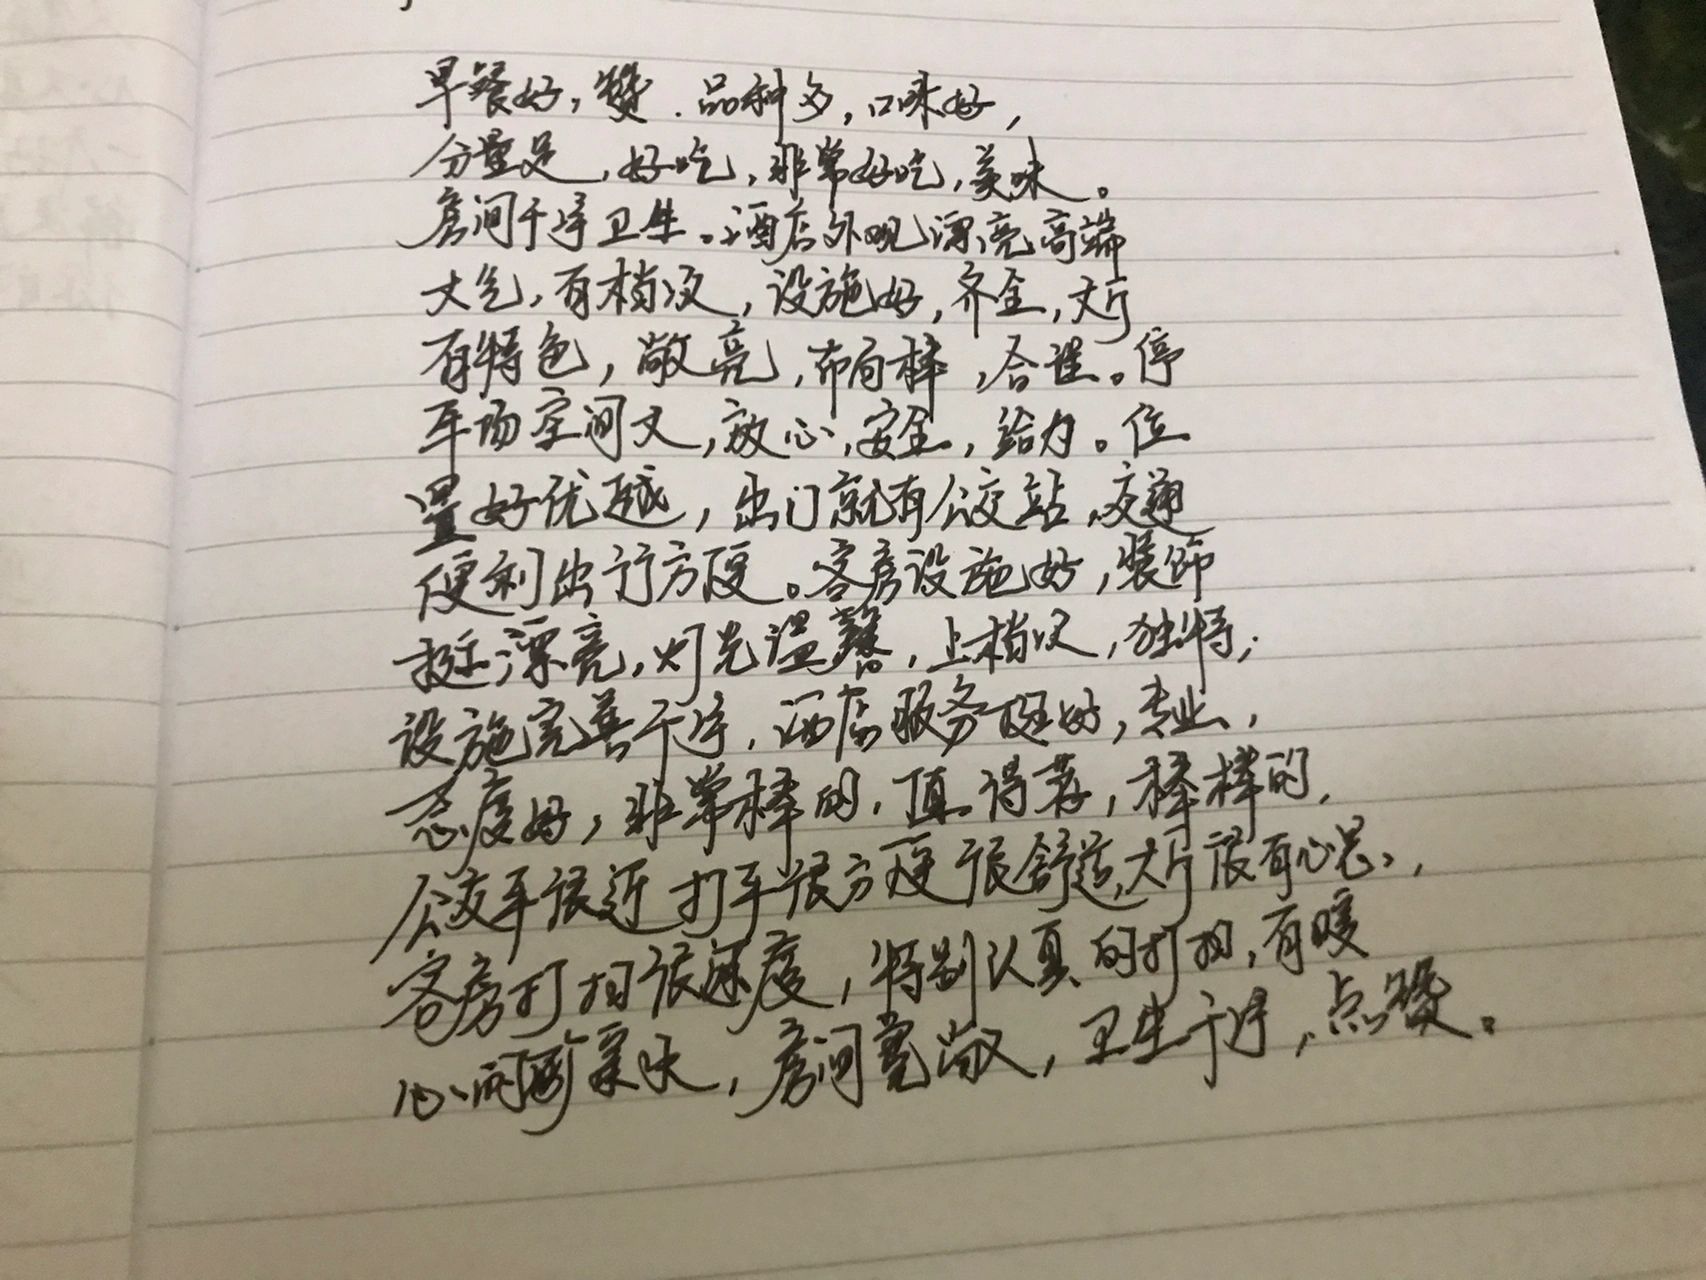 早餐好，赞．品种多，口味好，
分量足，好吃，非常好吃，美味。
房间干净卫生。酒店外观漂亮高端
大气，有档次，设施好，齐全，大厅
有特色，敞亮，布局棒，合理。停
车场空间大，放心，安全，给力。位
置好优越，出门就有公交站，交通
便利出行方便。客房设施好，装饰
挺漂亮，灯光温馨，上档次，独特，
设施完善干净，酒店服务挺好，专业，
态度好，非常棒的，值得荐，棒棒的，
公交车很近打车很方便很舒适，大厅很有心思，
客房打扫很速度，特别认真的打扫，有暖
心的亲，房间宽敞，卫生干净，点赞。